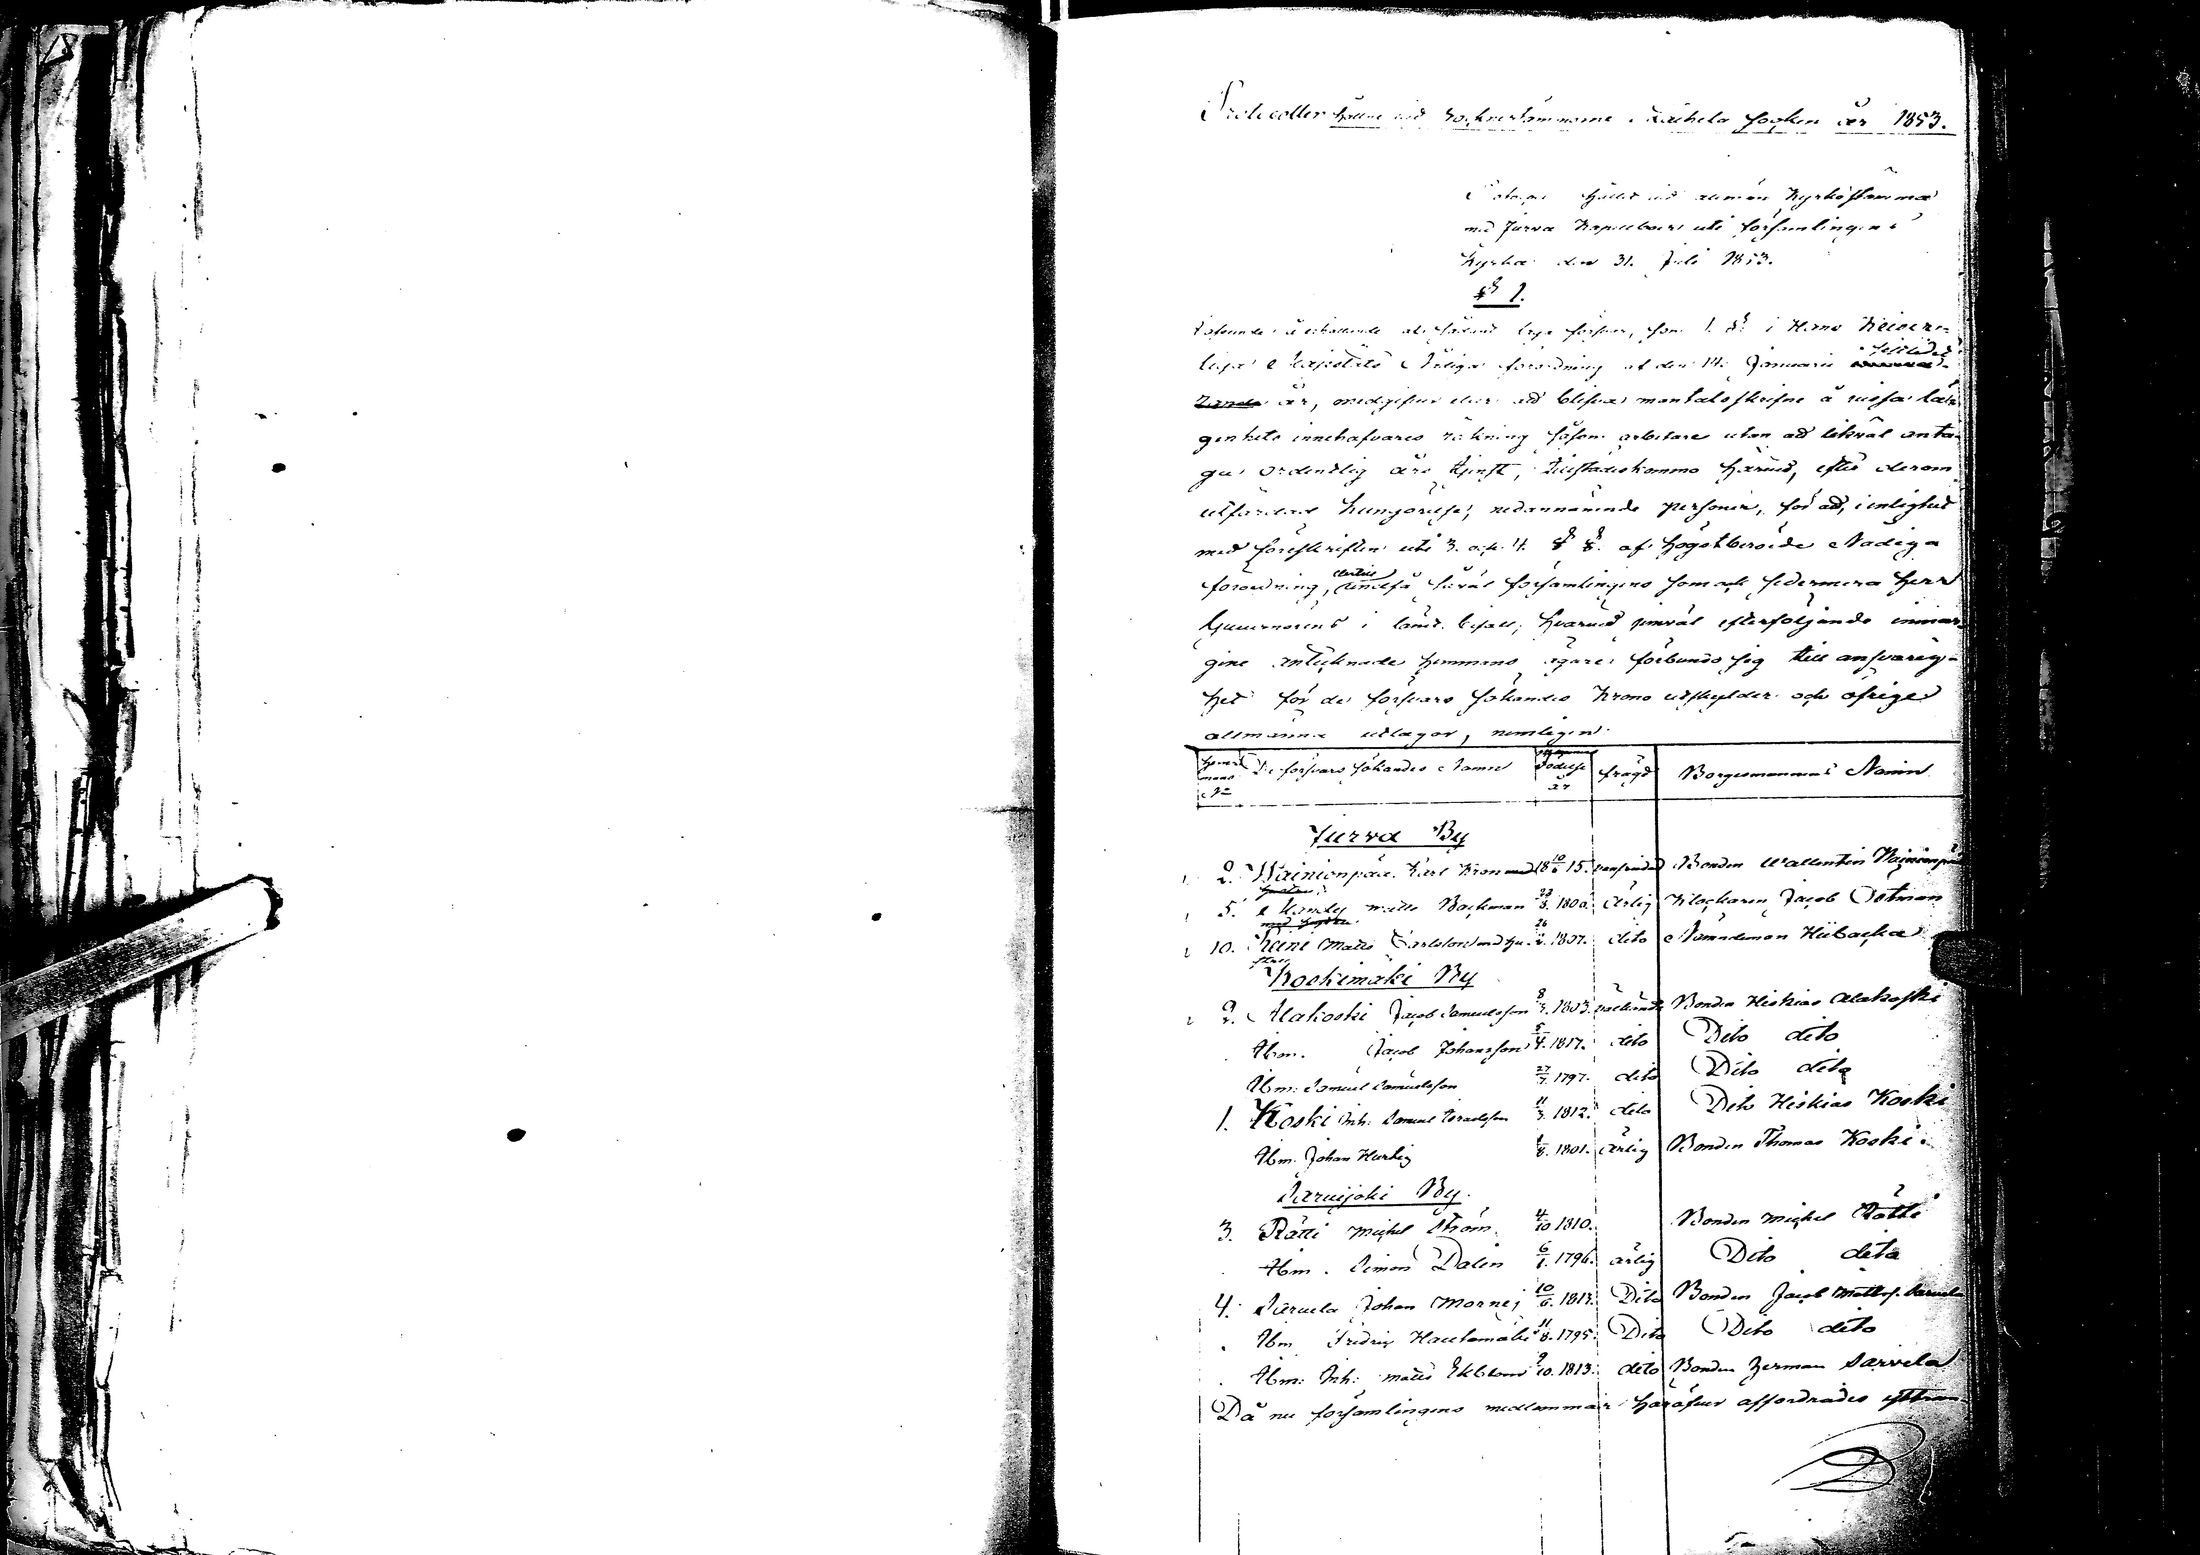 Protocoller hållne vid Socknestämmorne i Laihela Socken år 1853.
hållet vid allmän Kyrkostämma
med Jurva Capellboer uti församlingens
Kyrka den 31. Juli 1853.
§ 1.
åtnjutande laga försvar, som 1. § i Hans Keiserl-
liga Majestäts Nådiga förordning af den 14. Januarii sistledet
år, medgifver eller att blifva mantalsskrifne å vissa lä-
genhets innehafvares räkning såsom arbetare utan att likväl anta-
ga ordentlig års tjenst, tillstädeskommo härvid, efter derom
utfärdad kungörelse, nedannämnde personer, för att, i enlighet
med föreskriften uti 3. och 4. § §. af högstberörde Nådiga
förordning, undfå såväl församlingens som ock sedermera Herr
Guvernörens i länet bifall; hvarvid jemväl efterföljande in mar-
gine antecknade hemmans ägare förbundo sig till ansvarig-
het för de försvars sökandes Krono utskylder och öfrige
allmänna utlagor, nemligen:
Hemmans No De försvars sökandes Namn Födelse år frägd Borgesmannens Namn
Jurva By
2. Wainionpää Karl Kronman 18 10/6 15. Bonden Wallentin Wainionpää
5. Matts Backman 23/3. 1800. ärlig Klockaren Jacob Östman
10. Matts Carlsson med hu. 26/2. 1807. dito Nämndeman Hiibacka
Koskimäki By
2. Alakoski Jacob Samuelsson 8/3. 1803. välkänd Bonden Hiskias Alakoski
Ibm. Jacob Johansson 5/4. 1817. dito Dito dito
Ibm: Samuel Samuelsson 27/7. 1797. dito Dito dito
1. Koski Inh: Samuel Israelsson 11/3. 1812. dito Dito Hiskias Koski
Ibm. Johan Hurtig 1/8. 1801. ärlig Bonden Thomas Koski.
Sarvijoki By.
3. Rätti Michel Ström 4/10 1810. Bonden Michel Rätti
Ibm. Simon Dalin 6/1. 1796. ärlig Dito dito
4. Sarvela Johan Mornej 10/6. 1813. Dito Bonden Jacob Mattss. Sarvela
Ibm Fredric Hautamäki 11/8. 1795. Dito Dito dito
Ibm: Inh: Matts Ekblom 9/10. 1813. dito Bonden Herman Sarvela
Då nu församlingens medlemmar häröfver affordrades yttran-